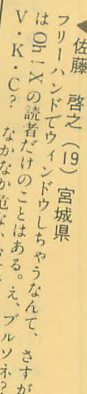 佐藤 啓之(19)宮城県
フリーハンドでウィンドウしちゃうなんて、さすが
は Oh!Xの読者だけのことはある。え、ブルソネ?
V・K・C? なかなか危な